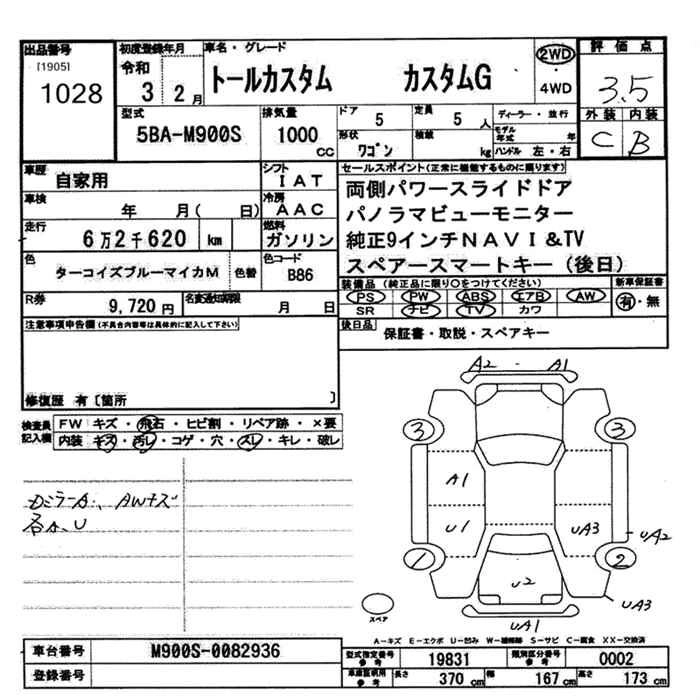 出品番号
[1905]
1028
初度登録年月
令和
3 2月
車名・グレード
トールカスタム カスタムG
2WD
4WD
評価点
3.5
外装 内装
C B
型式
5BA-M900S
排気量
1000 CC
ドア
5
定員
5 人
形状
ワゴン
積載
kg
ディーラー・並行
モデル年式 年
ハンドル 左・右
車歴
自家用
シフト
IAT
車検
年 月( 日)
冷房
AAC
走行
6万2千620 km
燃料
ガソリン
色
ターコイズブルーマイカM
色替
色コード
B86
R券
9,720円
名変通知期限
月 日
セールスポイント(正常に機能するものに限ります)
両側パワースライドドア
パノラマビューモニター
純正9インチNAVI&TV
スペアースマートキー(後日)
装備品(純正品に限り○をつけてください)
PS PW ABS エアB AW
SR ナビ TV カワ
新車保証書
有・無
後日品
保証書・取説・スペアキー
注意事項申告欄(不具合内容等は具体的に記入して下さい)
修復歴 有〔箇所 〕
検査員
記入欄
FW キズ・飛石・ヒビ割・リペア跡・×要
内装 キズ・汚レ・コゲ・穴・スレ・キレ・破レ
ミラーA、AWキズ
各A、U
A2 - A1
3
3
A1
U1
UA3
UA2
1
2
U2
UA3
UA1
スペア
A-キズ E-エクボ U-凹み W-補修跡 S-サビ C-腐食 XX-交換済
車台番号
M900S-0082936
登録番号
型式指定番号
参考
19831
類別区分番号
参考
0002
車庫証明用
参考
長さ 370 cm
幅 167 cm
高さ 173 cm